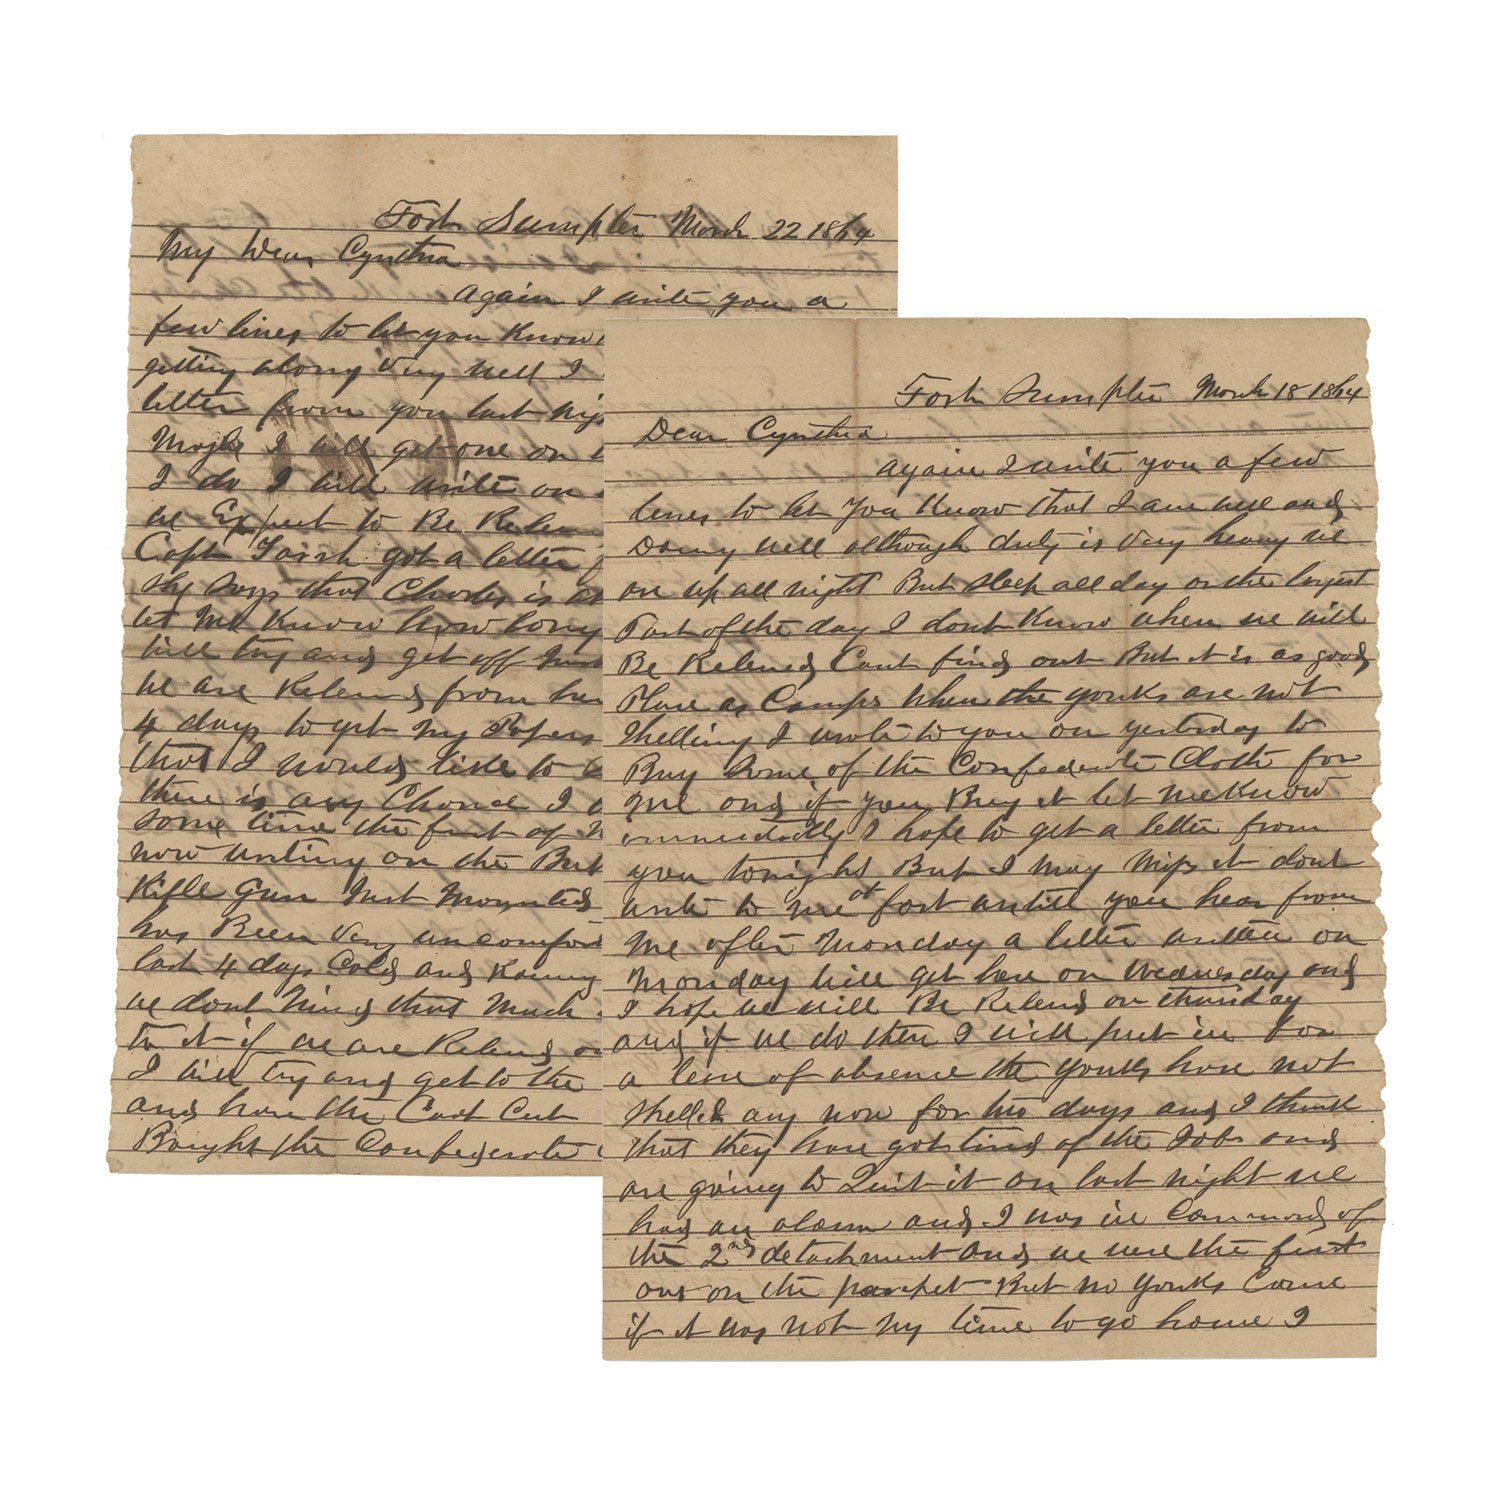 Fort Sumpter March 22 1864
My Dear Cynthia
Again I write you a
few lines to let you Know
getting along very well I
letter from you last nig
Maybe I will get one on
I do I will write on
we Expect to Be Relea
Capt got a letter
He says that Charles is
let Me Know how long
will try and get off Just
we are Relevd from her
4 days to get My Papers
that I would like to
there is any Chance I
some time the first of
now writing on the But
Rifle Gun Just Mounted
has Been very uncomfor
last 4 days Cold and Rainy
we dont Mind that Much
to it if we are Relevd on
I will try and get to the
and have the Coat Cut
Bought the Confederate
Fort Sumpter March 18 1864
Dear Cynthia
again I write you a few
lines to let You Know that I am well and
Doing well although duty is very heavy we
are up all night But sleep all day or the largest
Part of the day I dont Know when we will
Be Relieved Cant find out But it is as good
Place as Camps when the yanks are not
Shelling I wrote to you on yesterday to
Buy Some of the Confederate Cloth for
Me and if you Buy it let me Know
immediatly I hope to get a letter from
you tonight But I may Miss it dont
write to Me at fort untill you hear from
Me after Monday a letter written on
Monday will get here on Wednesday and
I hope we will Be Relevd on thursday
and if we do then I will put in for
a leave of absence the yanks have not
shelled any now for two days and I think
that they have got tired of the Job and
are going to Quit it on last night we
had an alarm and I was in Command of
the 2nd detachment and we were the first
out on the parapet But no yanks Come
if it was not My time to go home I